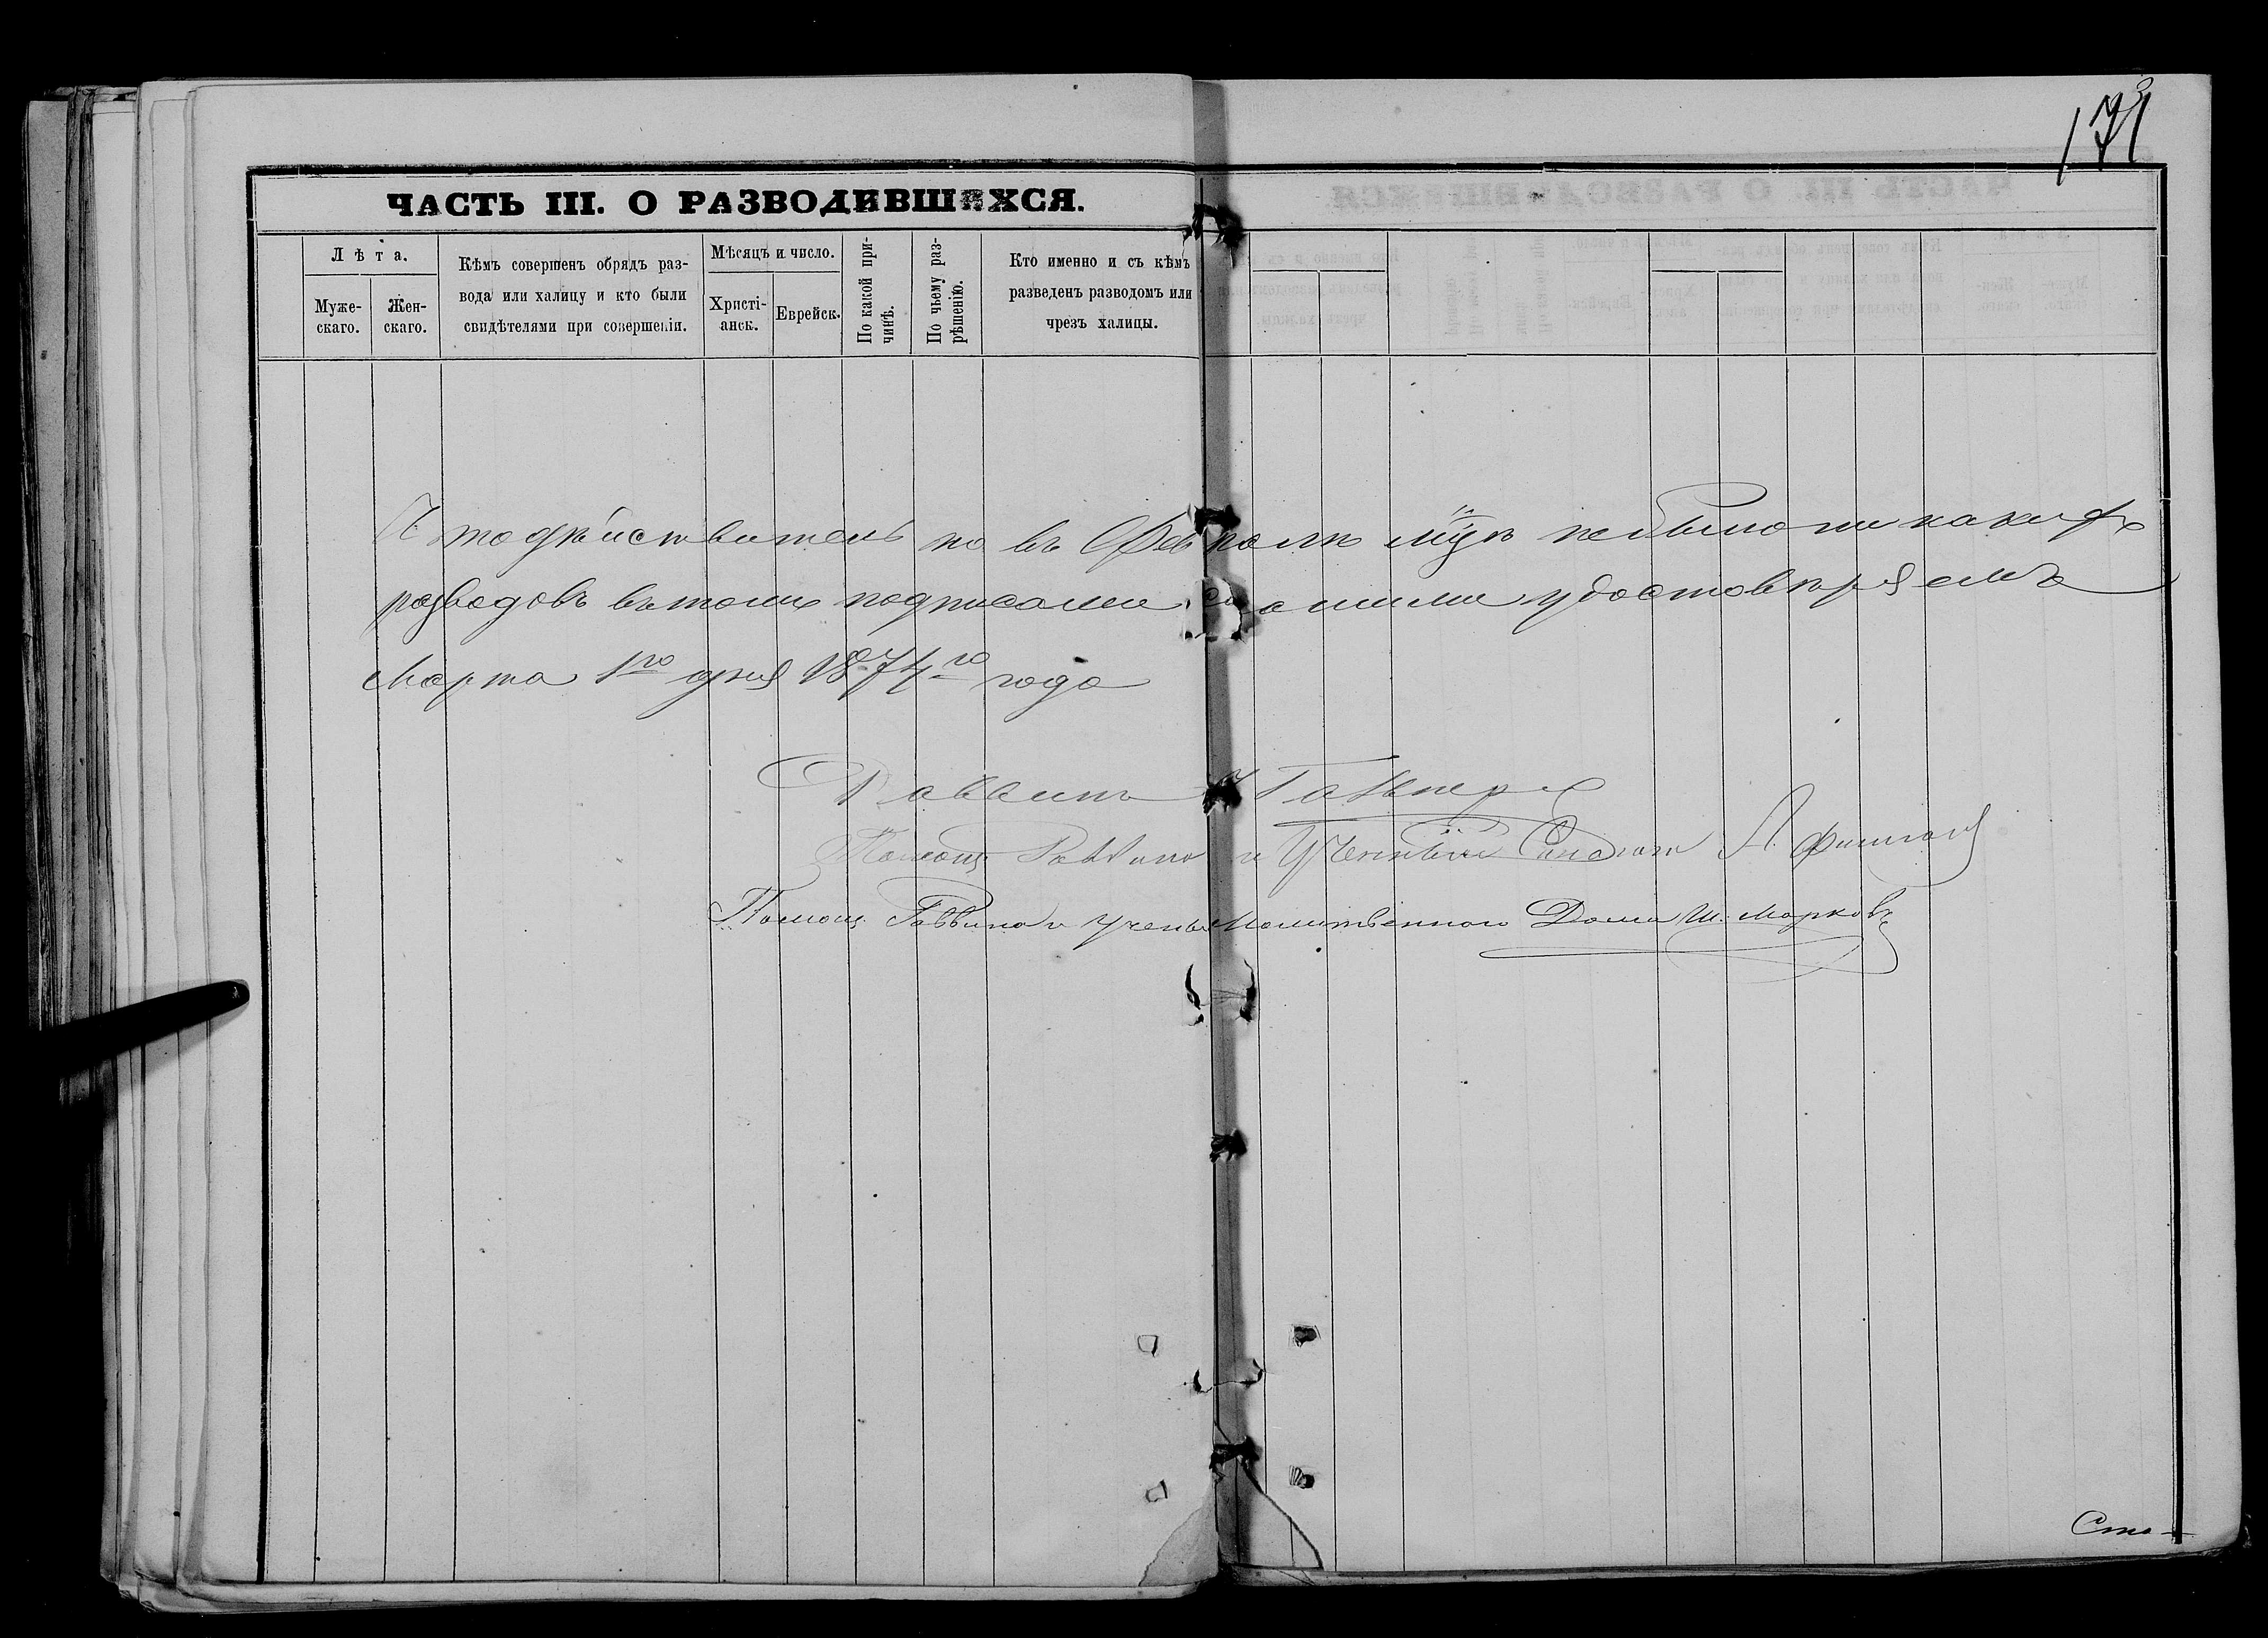 ЧАСТЬ III. О РАЗВОДИВШИХСЯ.
Лѣта.
Муже-
скаго.
Жен-
скаго.
Кѣмъ совершенъ обрядъ раз-
вода или халицу и кто были
свидѣтелями при совершеніи.
Мѣсяцъ и число.
Христі-
анск.
Еврейск.
По какой при-
чинѣ.
По чьему раз-
рѣшенію.
Кто именно и съ кѣмъ
разведенъ разводомъ или
чрезъ халицы.
Что дѣйствительно въ Февралѣ м̃цѣ небыло ни какихъ
разводовъ въ томъ подписами нашими удостовѣряемъ
Марта 1го дня 1874го года
Раввинъ
Помощ Раввина и Ученый
Помощ. Раввина и Учены Молитвеннаго Дома Ш. Марковъ
Сто